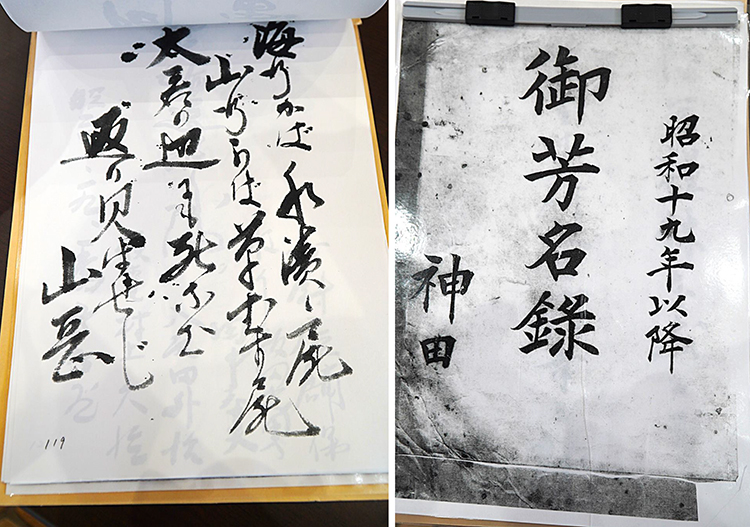 海行かば水漬く屍
山行かば草むす屍
大君の辺に死なむ
返り見はせじ
119
昭和十九年以降
御芳名録
神田